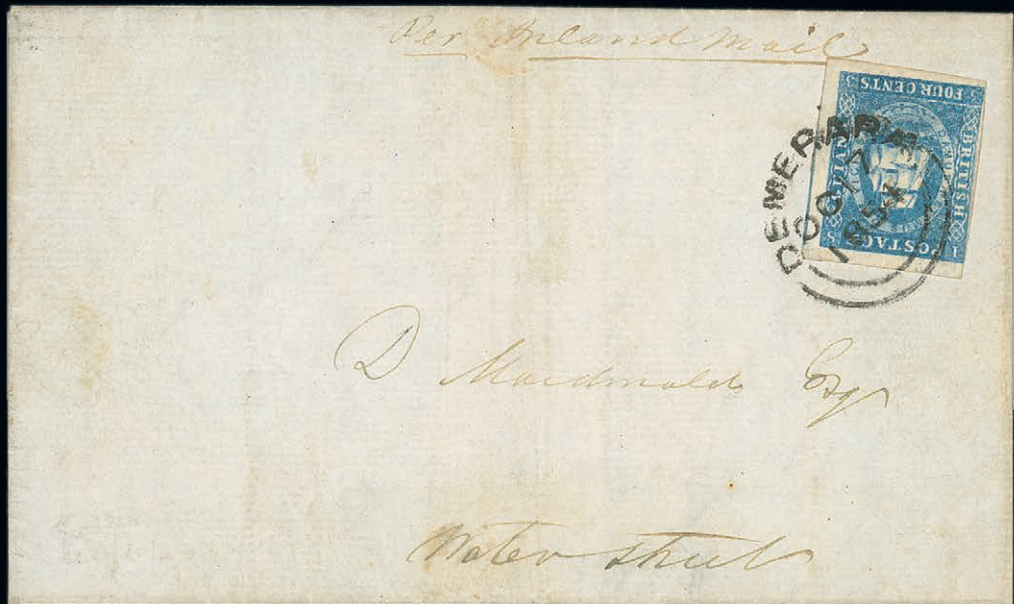 Per Inland Mail
FOUR CENTS
BRITISH
POSTAGE
DEMERARA
OC 17
1854
D Macdonald Esqr
Water Street